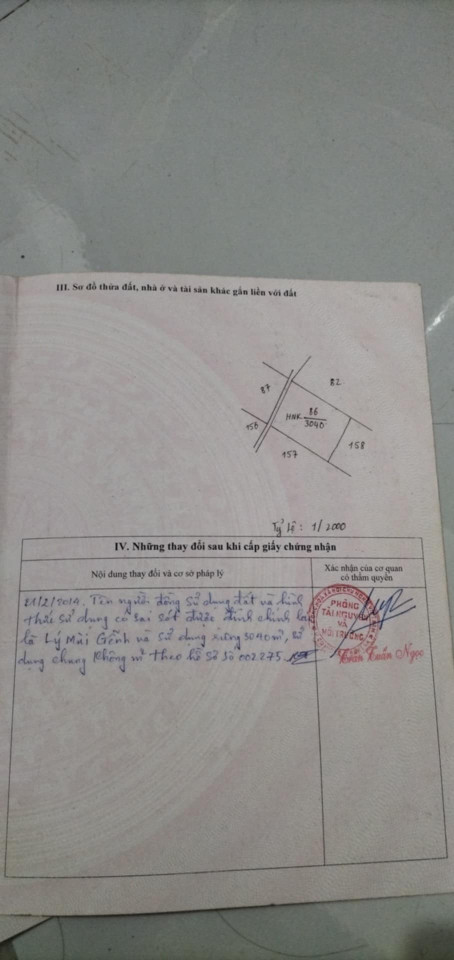 III. Sơ đồ thửa đất, nhà ở và tài sản khác gắn liền với đất
87
82
HNK 86
3040
156
157
158
Tỷ lệ : 1/2000
IV. Những thay đổi sau khi cấp giấy chứng nhận
Nội dung thay đổi và cơ sở pháp lý
Xác nhận của cơ quan
có thẩm quyền
21/2/2014. Tên người đồng sử dụng đất và hình
thức sử dụng có sai sót được đính chính lại
là Lý Mùi Ghênh và sử dụng riêng 3040 m², sử
dụng chung không m² theo hồ sơ số 002.275.
PHÒNG
TÀI NGUYÊN
VÀ
MÔI TRƯỜNG
Trần Xuân Ngọc